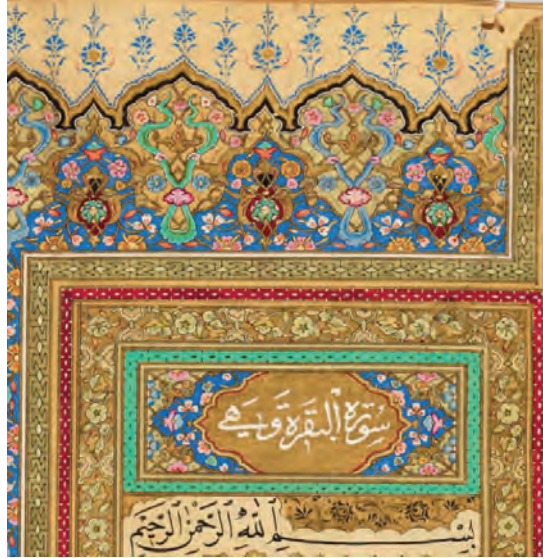 سُورَةُ الْبَقَرَةِ وَهِيَ
بِسْمِ اللَّهِ الرَّحْمَٰنِ الرَّحِيمِ